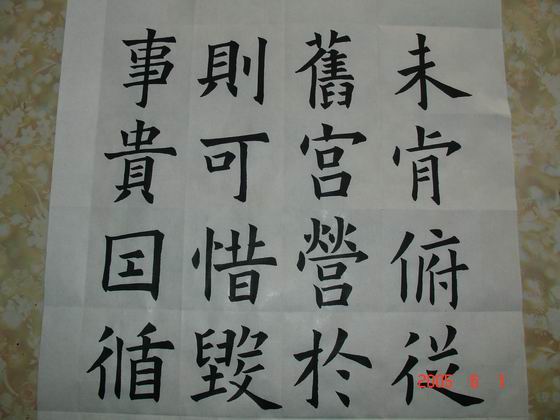 未肯俯從
舊宮營於
則可惜毀
事貴囙循
2005
1